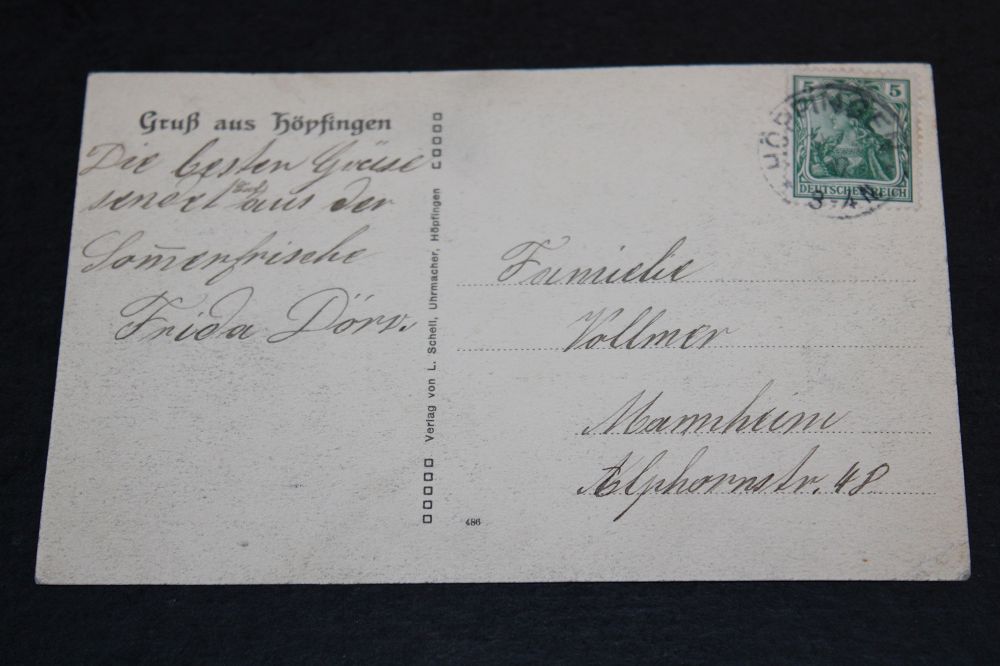 Gruß aus Höpfingen
Die besten Grüsse
sendet aus der
Sommerfrische
Frida Dörr.
Verlag von L. Schell, Uhrmacher, Höpfingen
486
5 5
DEUTSCHES REICH
HÖPFINGEN
3-4N
Familie
Vollmer
Mannheim
Alphornstr. 48